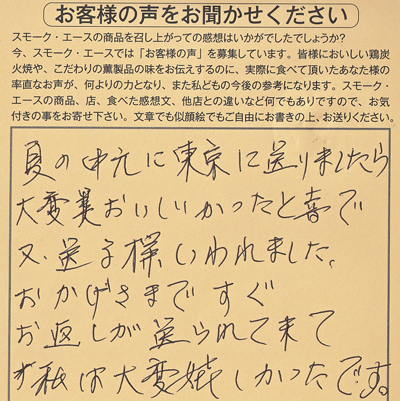 お客様の声をお聞かせください
スモーク・エースの商品を召し上がっての感想はいかがでしたでしょうか?
今、スモーク・エースでは「お客様の声」を募集しています。皆様においしい鶏炭
火焼や、こだわりの薫製品の味をお伝えするのに、実際に食べて頂いたあなた様の
率直なお声が、何よりの力となり、また私どもの今後の参考になります。スモーク・
エースの商品、店、食べた感想文、他店との違いなど何でもありですので、お気
付きの事をお寄せ下さい。文章でも似顔絵でもご自由にお書きの上、お送りください。
夏の中元に東京に送りましたら
大変おいしいかったと喜で
又、送る様いわれました。
おかげさまですぐ
お返しが送られて来て
私は大変嬉しかったです。